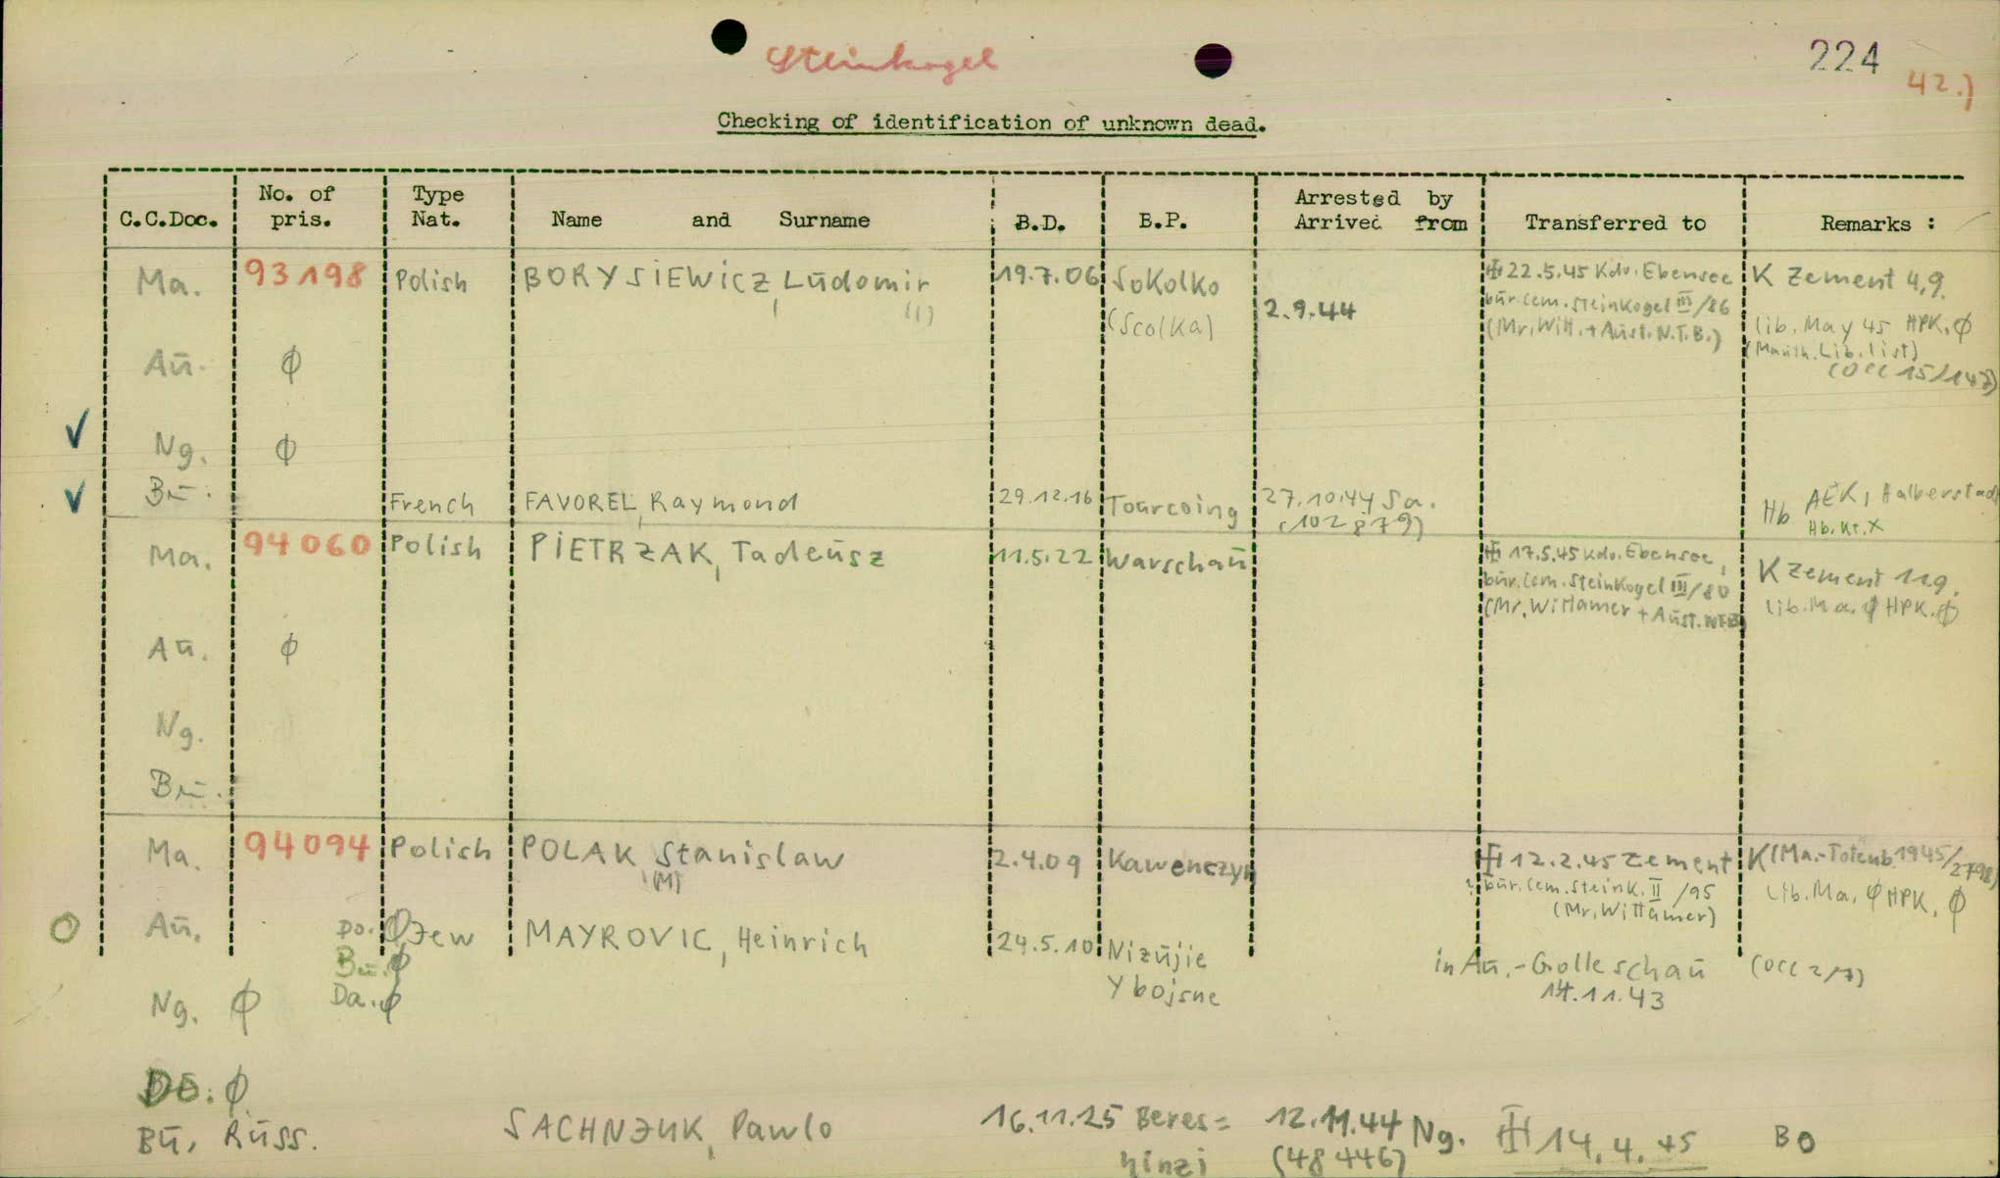 Steinkogel
224
42.)
Checking of identification of unknown dead.
C.C.Doc. No. of pris. Type Nat. Name and Surname B.D. B.P. Arrested by Arrived from Transferred to Remarks :
Ma. 93198 Polish BORYSIEWICZ, Ludomir 19.7.06 Sokolko 22.5.45 Kdo. Ebensee K Zement 4.9.
(Scolka) 2.9.44 bür. Cem. Steinkogel III/86 lib. May 45 HPK. Ø
(Mr. Witt. + Aust. N.T.B.) (Mauth. Lib. list)
(OCC 15/
Aū. Ø
Ng. Ø
Bū. French FAVOREL, Raymond 29.12.16 Tourcoing 27.10.44 Sa. AEK, Halberstad
(102879) Hb Hb. Kt. X
Ma. 94060 Polish PIETRZAK, Tadeūsz 11.5.22 Warschaū 17.5.45 Kdo. Ebensee, K Zement 11.9.
bür. Cem. Steinkogel III/80 lib. Ma. Ø HPK. Ø
(Mr. Wittamer + Aūst. NTB)
Aū. Ø
Ng.
Bū.
Ma. 94094 Polish POLAK Stanislaw 2.4.09 Kawenczyn 12.2.45 Zement K (Ma.-Totenb. 1945/
(M) ? bür. Cem. Steink. II /95 Lib. Ma. Ø HPK. Ø
(Mr. Wittamer)
Aū. Do. Ø Jew MAYROVIC, Heinrich 24.5.10 Nizūjie in Aū.-Golleschaū (OCC 2/7)
Bū. Ø Ybojsne 14.11.43
Ng. Ø Da. Ø
Do: Ø
Bū, Rūss. SACHNJUK, Pawlo 16.11.25 Beres= 12.11.44 Ng. 14.4.45 BO
hinzi (48446)